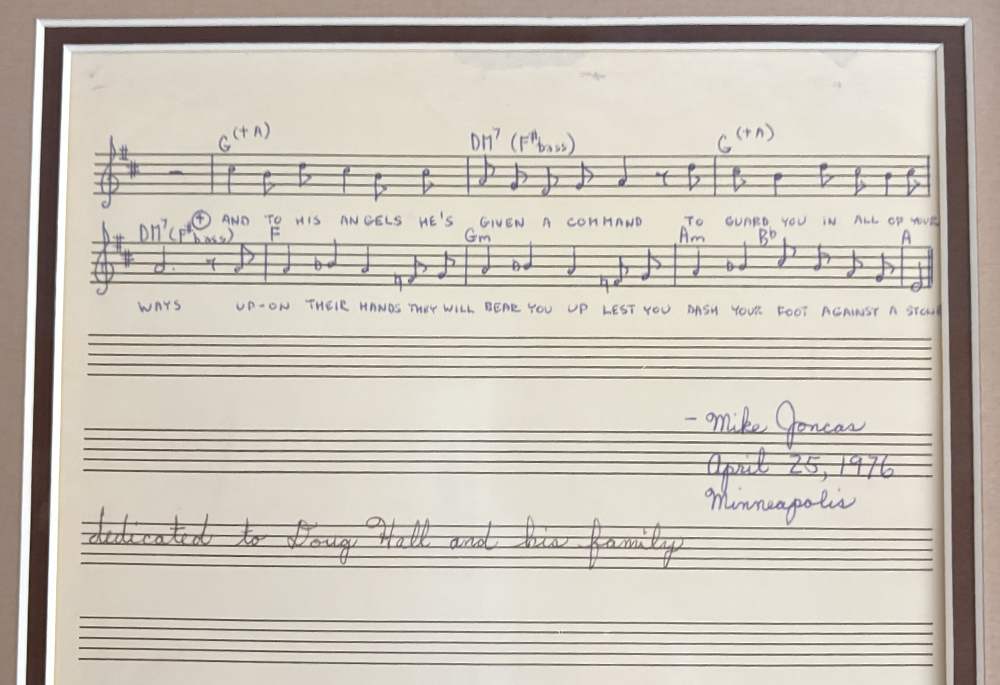 G(+A) DM7 (F#bass) G(+A)
AND TO HIS ANGELS HE'S GIVEN A COMMAND TO GUARD YOU IN ALL OF YOUR
DM7 (F#bass) F Gm Am Bb A
WAYS UP-ON THEIR HANDS THEY WILL BEAR YOU UP LEST YOU DASH YOUR FOOT AGAINST A STONE
- Mike Joncas
April 25, 1976
Minneapolis
dedicated to Doug Hall and his family